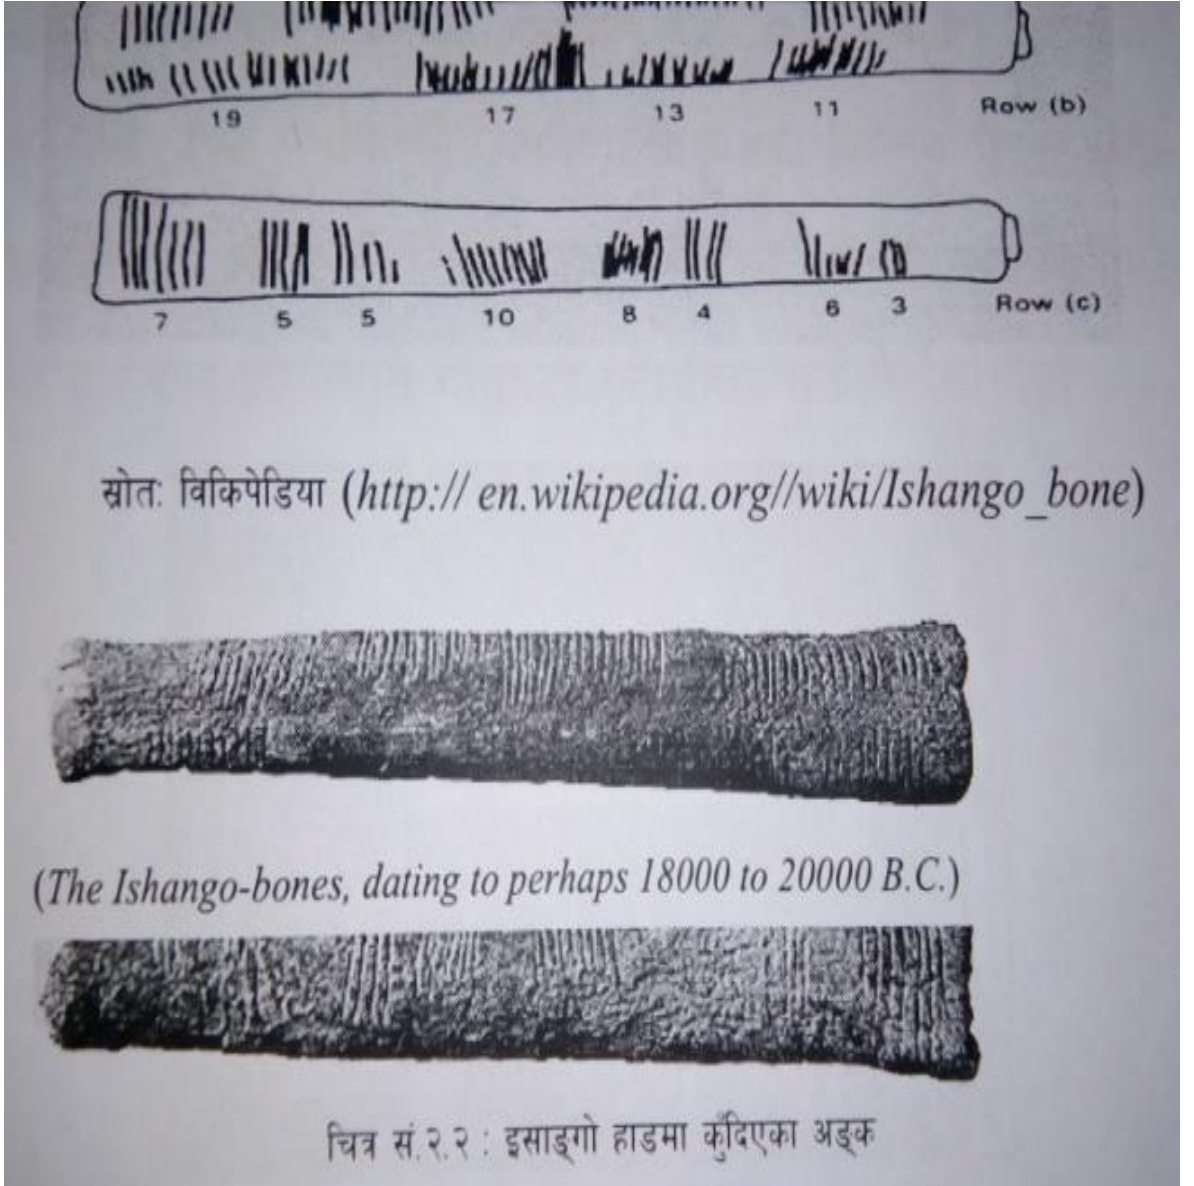 19 17 13 11 Row (b)
7 5 5 10 8 4 6 3 Row (c)
स्रोत: विकिपेडिया (http:// en.wikipedia.org//wiki/Ishango_bone)
(The Ishango-bones, dating to perhaps 18000 to 20000 B.C.)
चित्र सं.२.२ : इसाङ्गो हाडमा कुँदिएका अङ्क